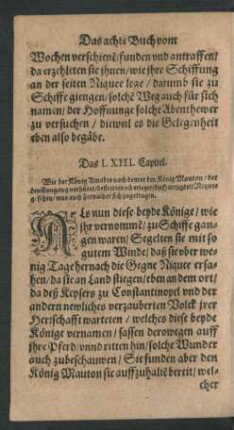 Das achte Buch vom
Wochen verschienē/ funden vnd antraffen/
da erzehleten sie ihnen/ wie ihre Schiffung
an der seiten Niquee lege / darumb sie zu
Schiffe giengen/ solchē Weg auch für sich
namen/ der Hoffnunge solche Abenthewer
zu versuchen / dieweil es die Gelegenheit
eben also begäbe.
Das LXIII. Capitel.
Wie der König Amadis nach dem er den König Mauton / der
ALs nun diese beyde Könige/ wie
ihr vernommē/ zu Schiffe gan-
gen waren/ Segelten sie mit so
gutem Winde/ daß sie vber we-
nig Tage hernach die Gegne Niquee ersa-
hen/ da sie an Land stiegen/ eben an dem ort/
da deß Keysers zu Constantinopel vnd der
andern newliches verzauberten Volck jrer
Herrschafft warteten / welches diese beyde
Könige vernamen/ sassen derowegen auff
ihre Pferd/ vnnd ritten hin/ solche Wunder
auch zubeschauwen/ Sie funden aber den
König Mauton sie auffzuhaltē bereit/ wel-
cher